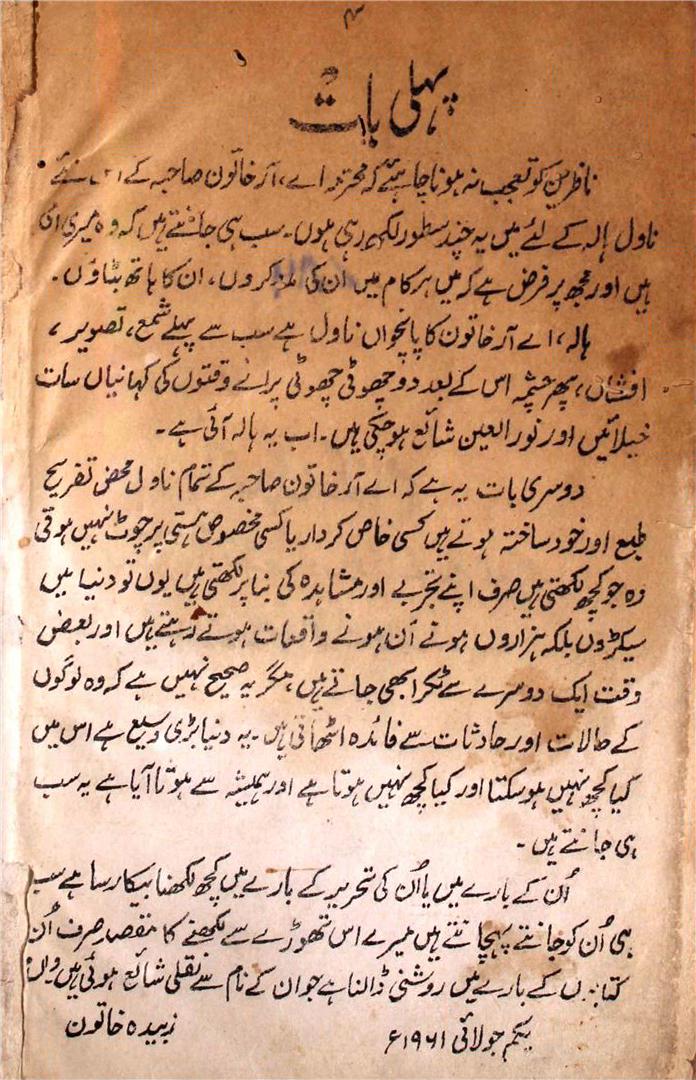 پہلی بات
ناظرین کو تعجب نہ ہونا چاہئے کہ محترمہ اے، آر خاتون صاحبہ کے اس نئے
ناول ہالہ کے لئے میں یہ چند سطور لکھ رہی ہوں۔ سب ہی جانتے ہیں کہ وہ میری امی
ہیں اور مجھ پر فرض ہے کہ میں ہر کام میں ان کی مدد کروں، ان کا ہاتھ بٹاؤں۔
ہالہ، اے آر خاتون کا پانچواں ناول ہے سب سے پہلے شمع، تصویر،
افشاں، پھر چشمہ اس کے بعد دو چھوٹی چھوٹی پرانے وقتوں کی کہانیاں سات
خیلائیں اور نورالعین شائع ہوچکی ہیں۔ اب یہ ہالہ آئی ہے۔
دوسری بات یہ ہے کہ اے آر خاتون صاحبہ کے تمام ناول محض تفریح
طبع اور خود ساختہ ہوتے ہیں کسی خاص کردار یا کسی مخصوص ہستی پر چوٹ نہیں ہوتی
وہ جو کچھ لکھتی ہیں صرف اپنے تجربے اور مشاہدہ کی بنا پر لکھتی ہیں یوں تو دنیا میں
سیکڑوں بلکہ ہزاروں ہونے اَن ہونے واقعات ہوتے رہتے ہیں اور بعض
وقت ایک دوسرے سے ٹکرا بھی جاتے ہیں، مگر یہ صحیح نہیں ہے کہ وہ لوگوں
کے حالات اور حادثات سے فائدہ اٹھاتی ہیں۔ یہ دنیا بڑی وسیع ہے اس میں
کیا کچھ نہیں ہوسکتا اور کیا کچھ نہیں ہوتا ہے اور ہمیشہ سے ہوتا آیا ہے یہ سب
ہی جانتے ہیں۔
اُن کے بارے میں یا اُن کی تحریر کے بارے میں کچھ لکھنا بیکار سا ہے سب
ہی اُن کو جانتے پہچانتے ہیں میرے اس تھوڑے سے لکھنے کا مقصد صرف اُن
کتابوں کے بارے میں روشنی ڈالنا ہے جو ان کے نام سے نقلی شائع ہوئی ہیں
زبیدہ خاتون
یکم جولائی ۱۹۶۱ء